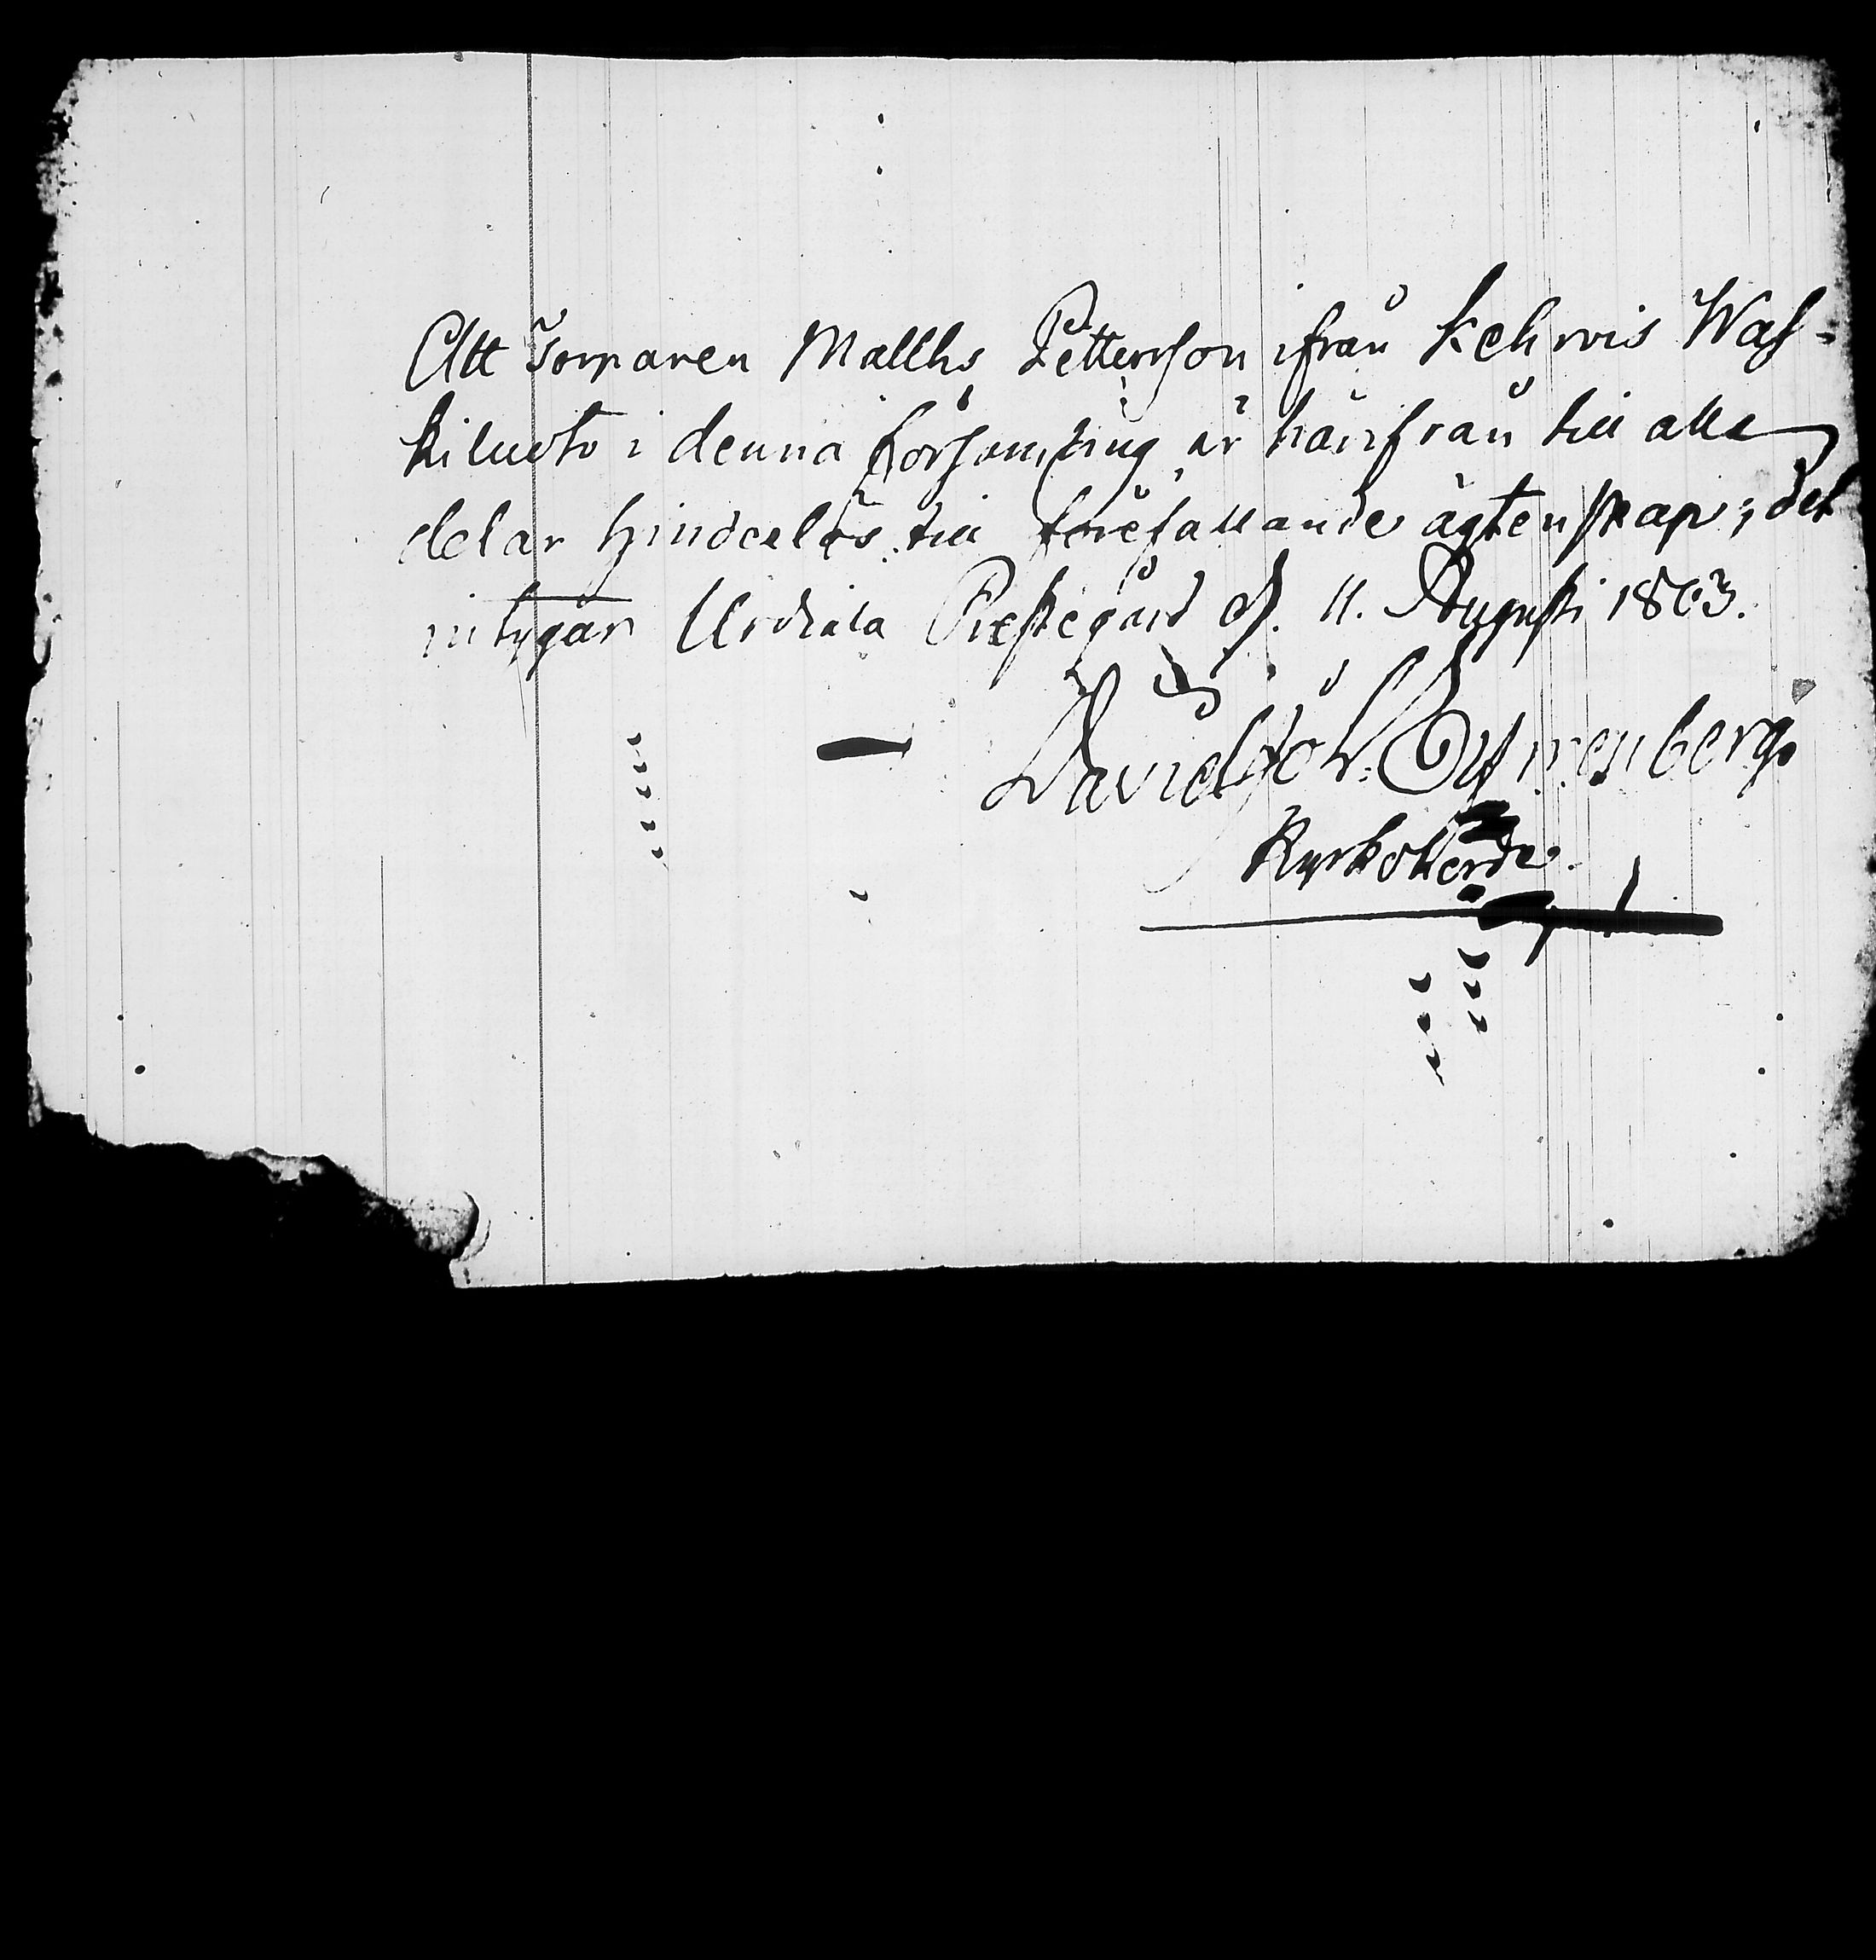 Att Torparen Matths Pettersson ifrån Kehrois Was-
kiluoto i denna Församling är härifrån till alla
delar hinderlös till förefallande ägtenskap; det
intygar Urdiala Prestegård d. 11. Augusti 1803.
David Joh:
Kyrkoherde.